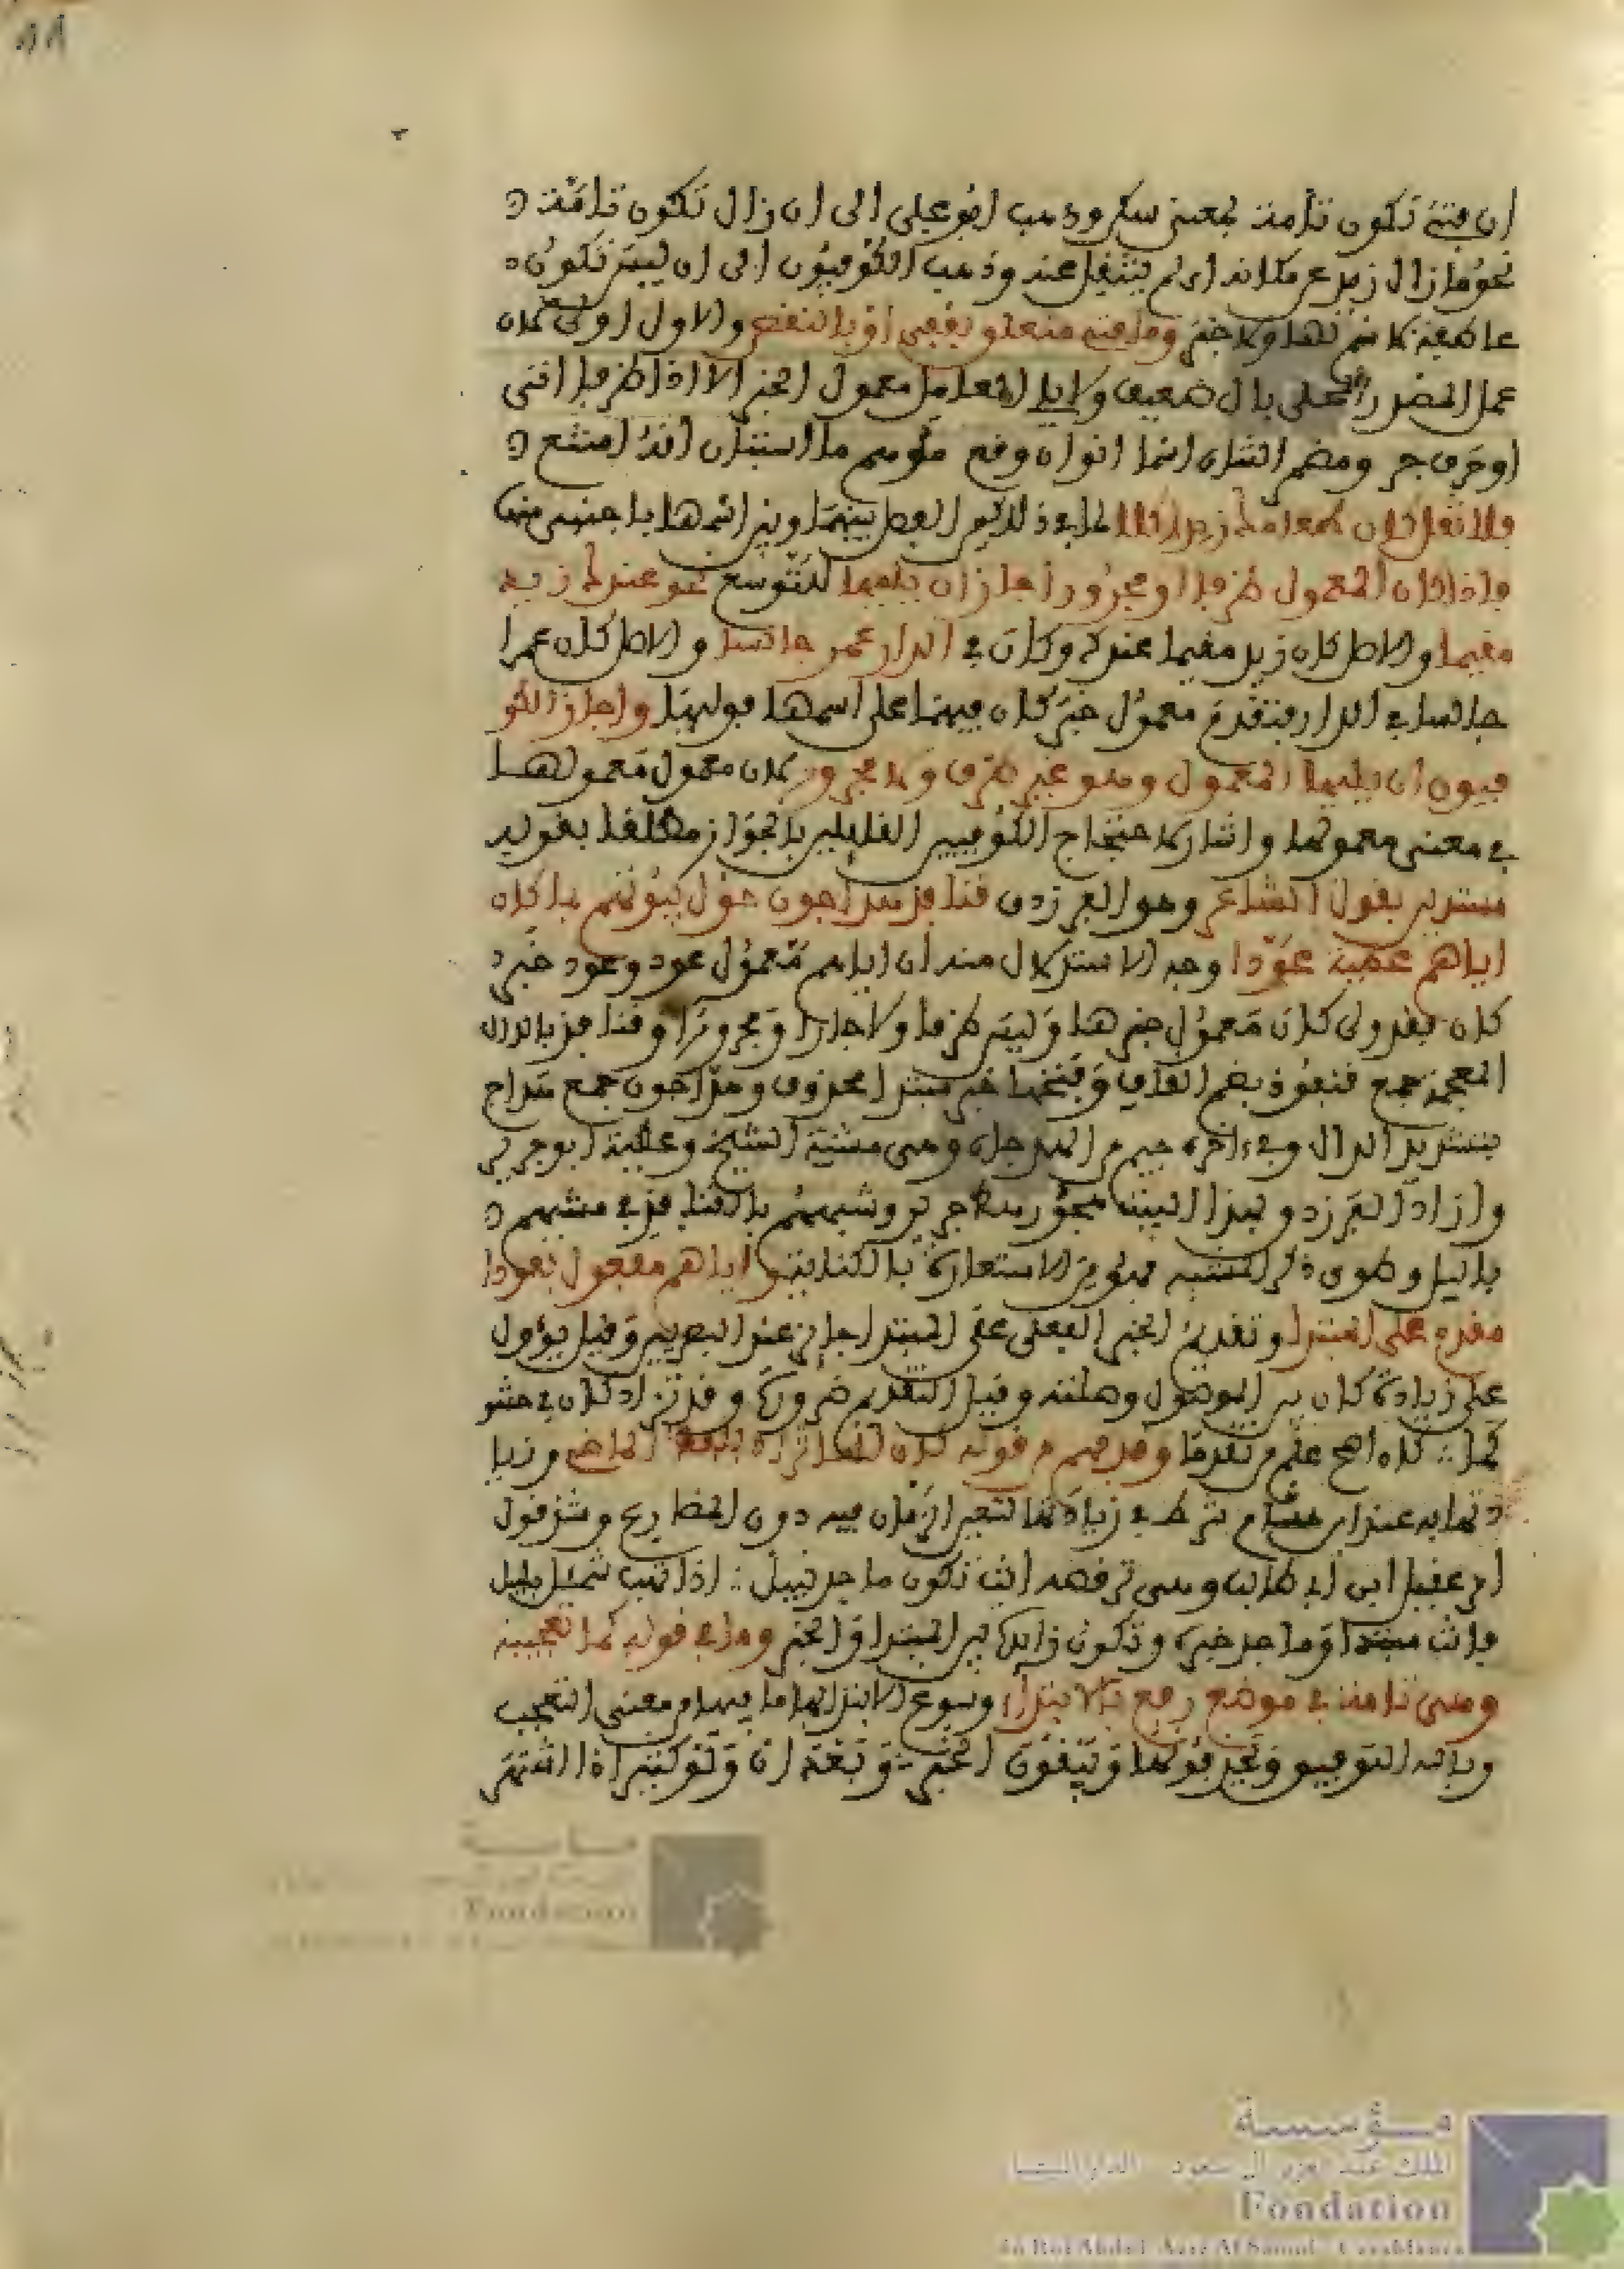 ان فتئ تكون تامة بمعنى سكن وذهب ابو علي الى ان زال تكون تامة
نحو ما زال زيد عن مكانه اي لم ينتقل عنه وذهب الكوفيون الى ان ليس تكون
عاطفة لا اسم لها ولا خبر وما فتئ متعلق بقفي او بالنقص والاول اولى لان
عمل المصدر المحلى بال ضعيف ولا يلي العامل معمول الخبر الا اذا ظرفا اتى
او حرف جر ومضمر الشان اسما انو ان وقع موهم ما استبان انه امتنع
فلا تقل كان طعامك زيد اكلا لما في ذلك من الفصل بينها وبين اسمها باجنبي منها
فاذا كان المعمول ظرفا او مجرورا جاز ان يليها للتوسع نحو عندك زيد
مقيما والاصل كان زيد مقيما عندك وكان في الدار عمر جالسا والاصل كان عمرا
جالسا في الدار فتقدم معمول خبر كان فيهما على اسمها فوليها واجاز الكو
فيون ان يليها المعمول وهو غير ظرف ولا مجرور لان معمول معمولها
في معنى معمولها واشار لاحتجاج الكوفيين القايلين بالجواز مطلقا بقوله
مستدلين بقول الشاعر وهو الفرزدق قنافذ هداجون حول بيوتهم بما كان
اياهم عطية عودا وجه الاستدلال منه ان اياهم معمول عود وعود خبر
كان فقد ولى كان معمول خبرها وليس ظرفا ولا جارا ومجرورا وقنافذ بالذال
المعجمة جمع قنفوذ بضم القاف وفتحها خبر مبتدا محذوف وهداجون جمع هداج
بتشديد الدال وفي اخره جيم من الهدجان وهي مشية الشيخ وعطية ابو جرير
واراد الفرزدق بهذا البيت هجو رهط جرير وشبههم بالقنافذ في مشيهم
بالليل وطوى ذكر المشبه فهو من الاستعارة بالكناية واياهم مفعول بعودا
مقدم على المبتدا وتقديم الخبر الفعلي على المبتدا جايز عند البصريين وقيل يؤول
على زيادة كان بين الموصول وصلته وقيل التقديم ضرورة وقد تزاد كان في حشو
كما كان اصح علم من تقدما وفهم من قوله كان انها تزاد بلفظ الماضي وزيا
دتها به عند ابن هشام شرط في زيادتها لتعين الزمان فيه دون المضارع وشذ قول
ام عقيل ابن ابي طالب وهي ترقصه انت تكون ماجد نبيل اذا تهب شمئل بليل
فانت مبتدا وماجد خبره وتكون زائدة بين المبتدا والخبر وما في قوله كما تعجيبة
وهي تامة في موضع رفع بالابتداء وسوغ الابتداء بها ما فيها من معنى التعجب
وبالله التوفيق ويحذفونها ويبقون الخبر وبعد ان ولو كثيرا ذا اشتهر
مؤسسة
الملك عبد العزيز آل سعود الدار البيضاء
Fondation
du Roi Abdul-Aziz Al Saoud Casablanca